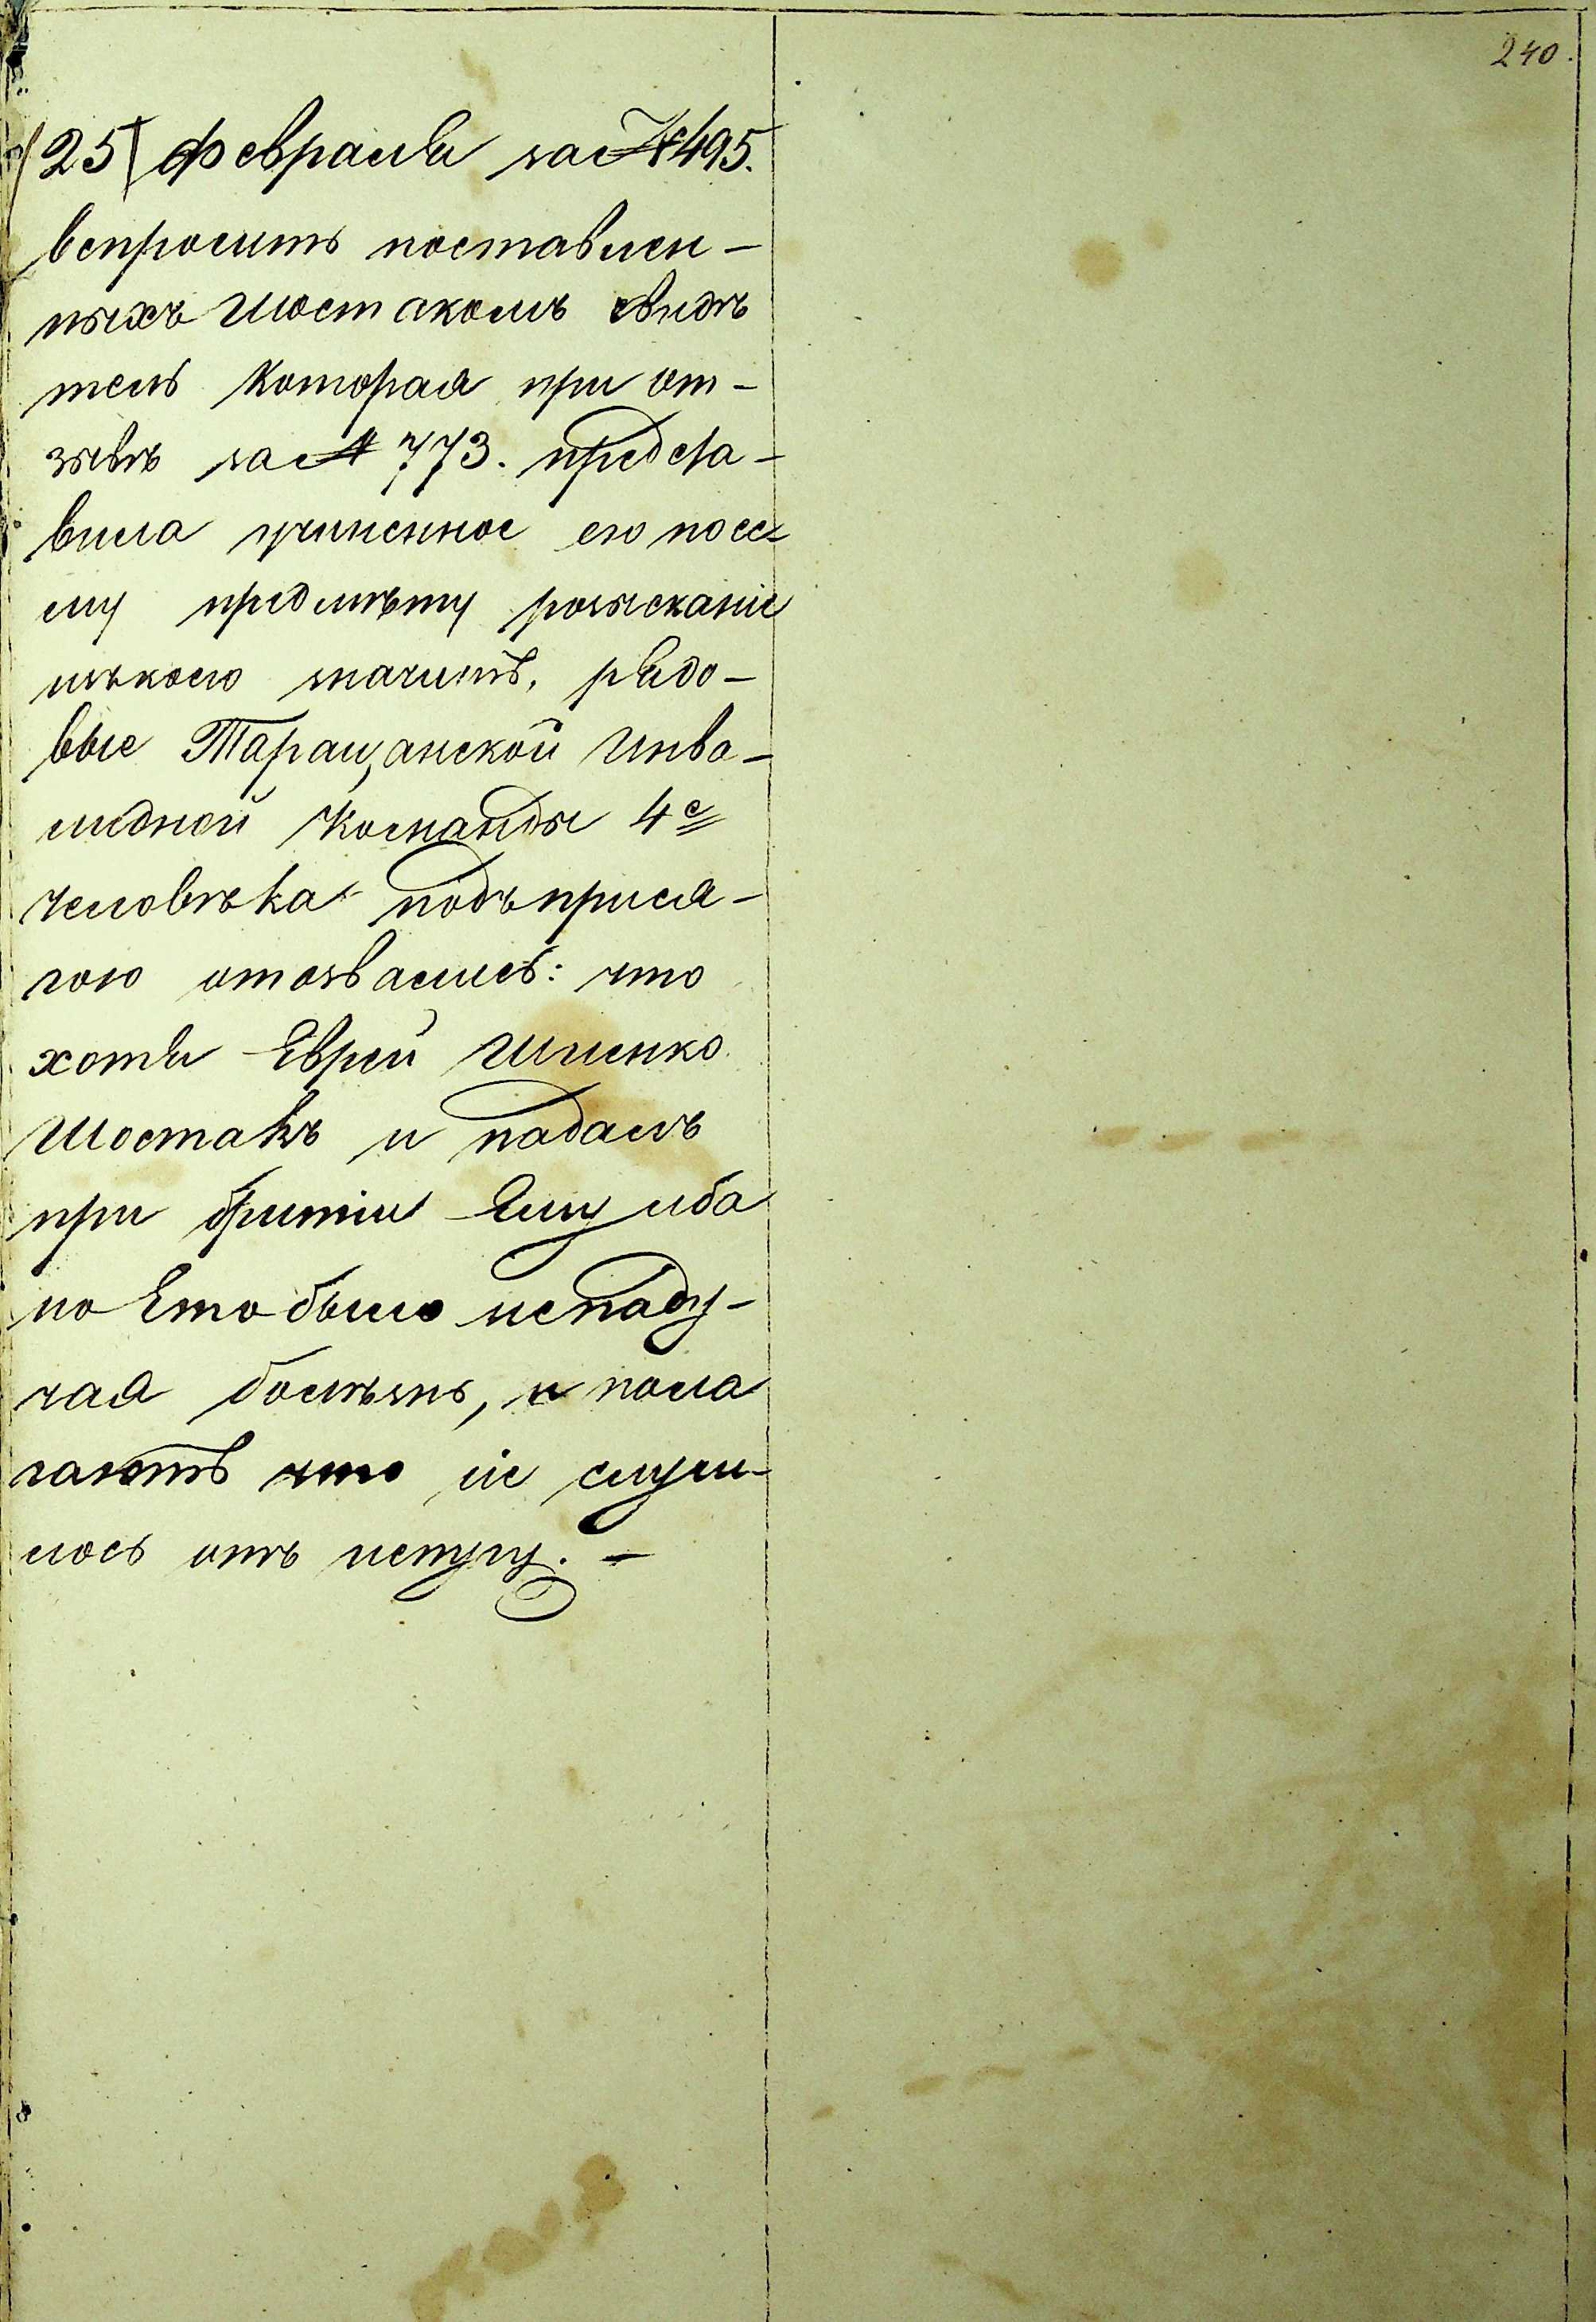 240.
(25) февраля за № 495.
вспросить поставлен-
ныхъ Шостакомъ свидѣ
тель которая при от-
зывѣ за № 773. предста-
вила учиненное ею по се-
му предмѣту розысканіе
изъ коего значитъ, рядо-
вые Таращанской инва-
лидной команды 4е
человѣка подъ прися-
гою отозвались: что
хотя Еврей Шленко
Шостакъ и падалъ
при бритіи Ему лба
но Ето было не паду-
чая болѣзнь, и пола
гаютъ что сіе случи-
лось отъ испугу. —